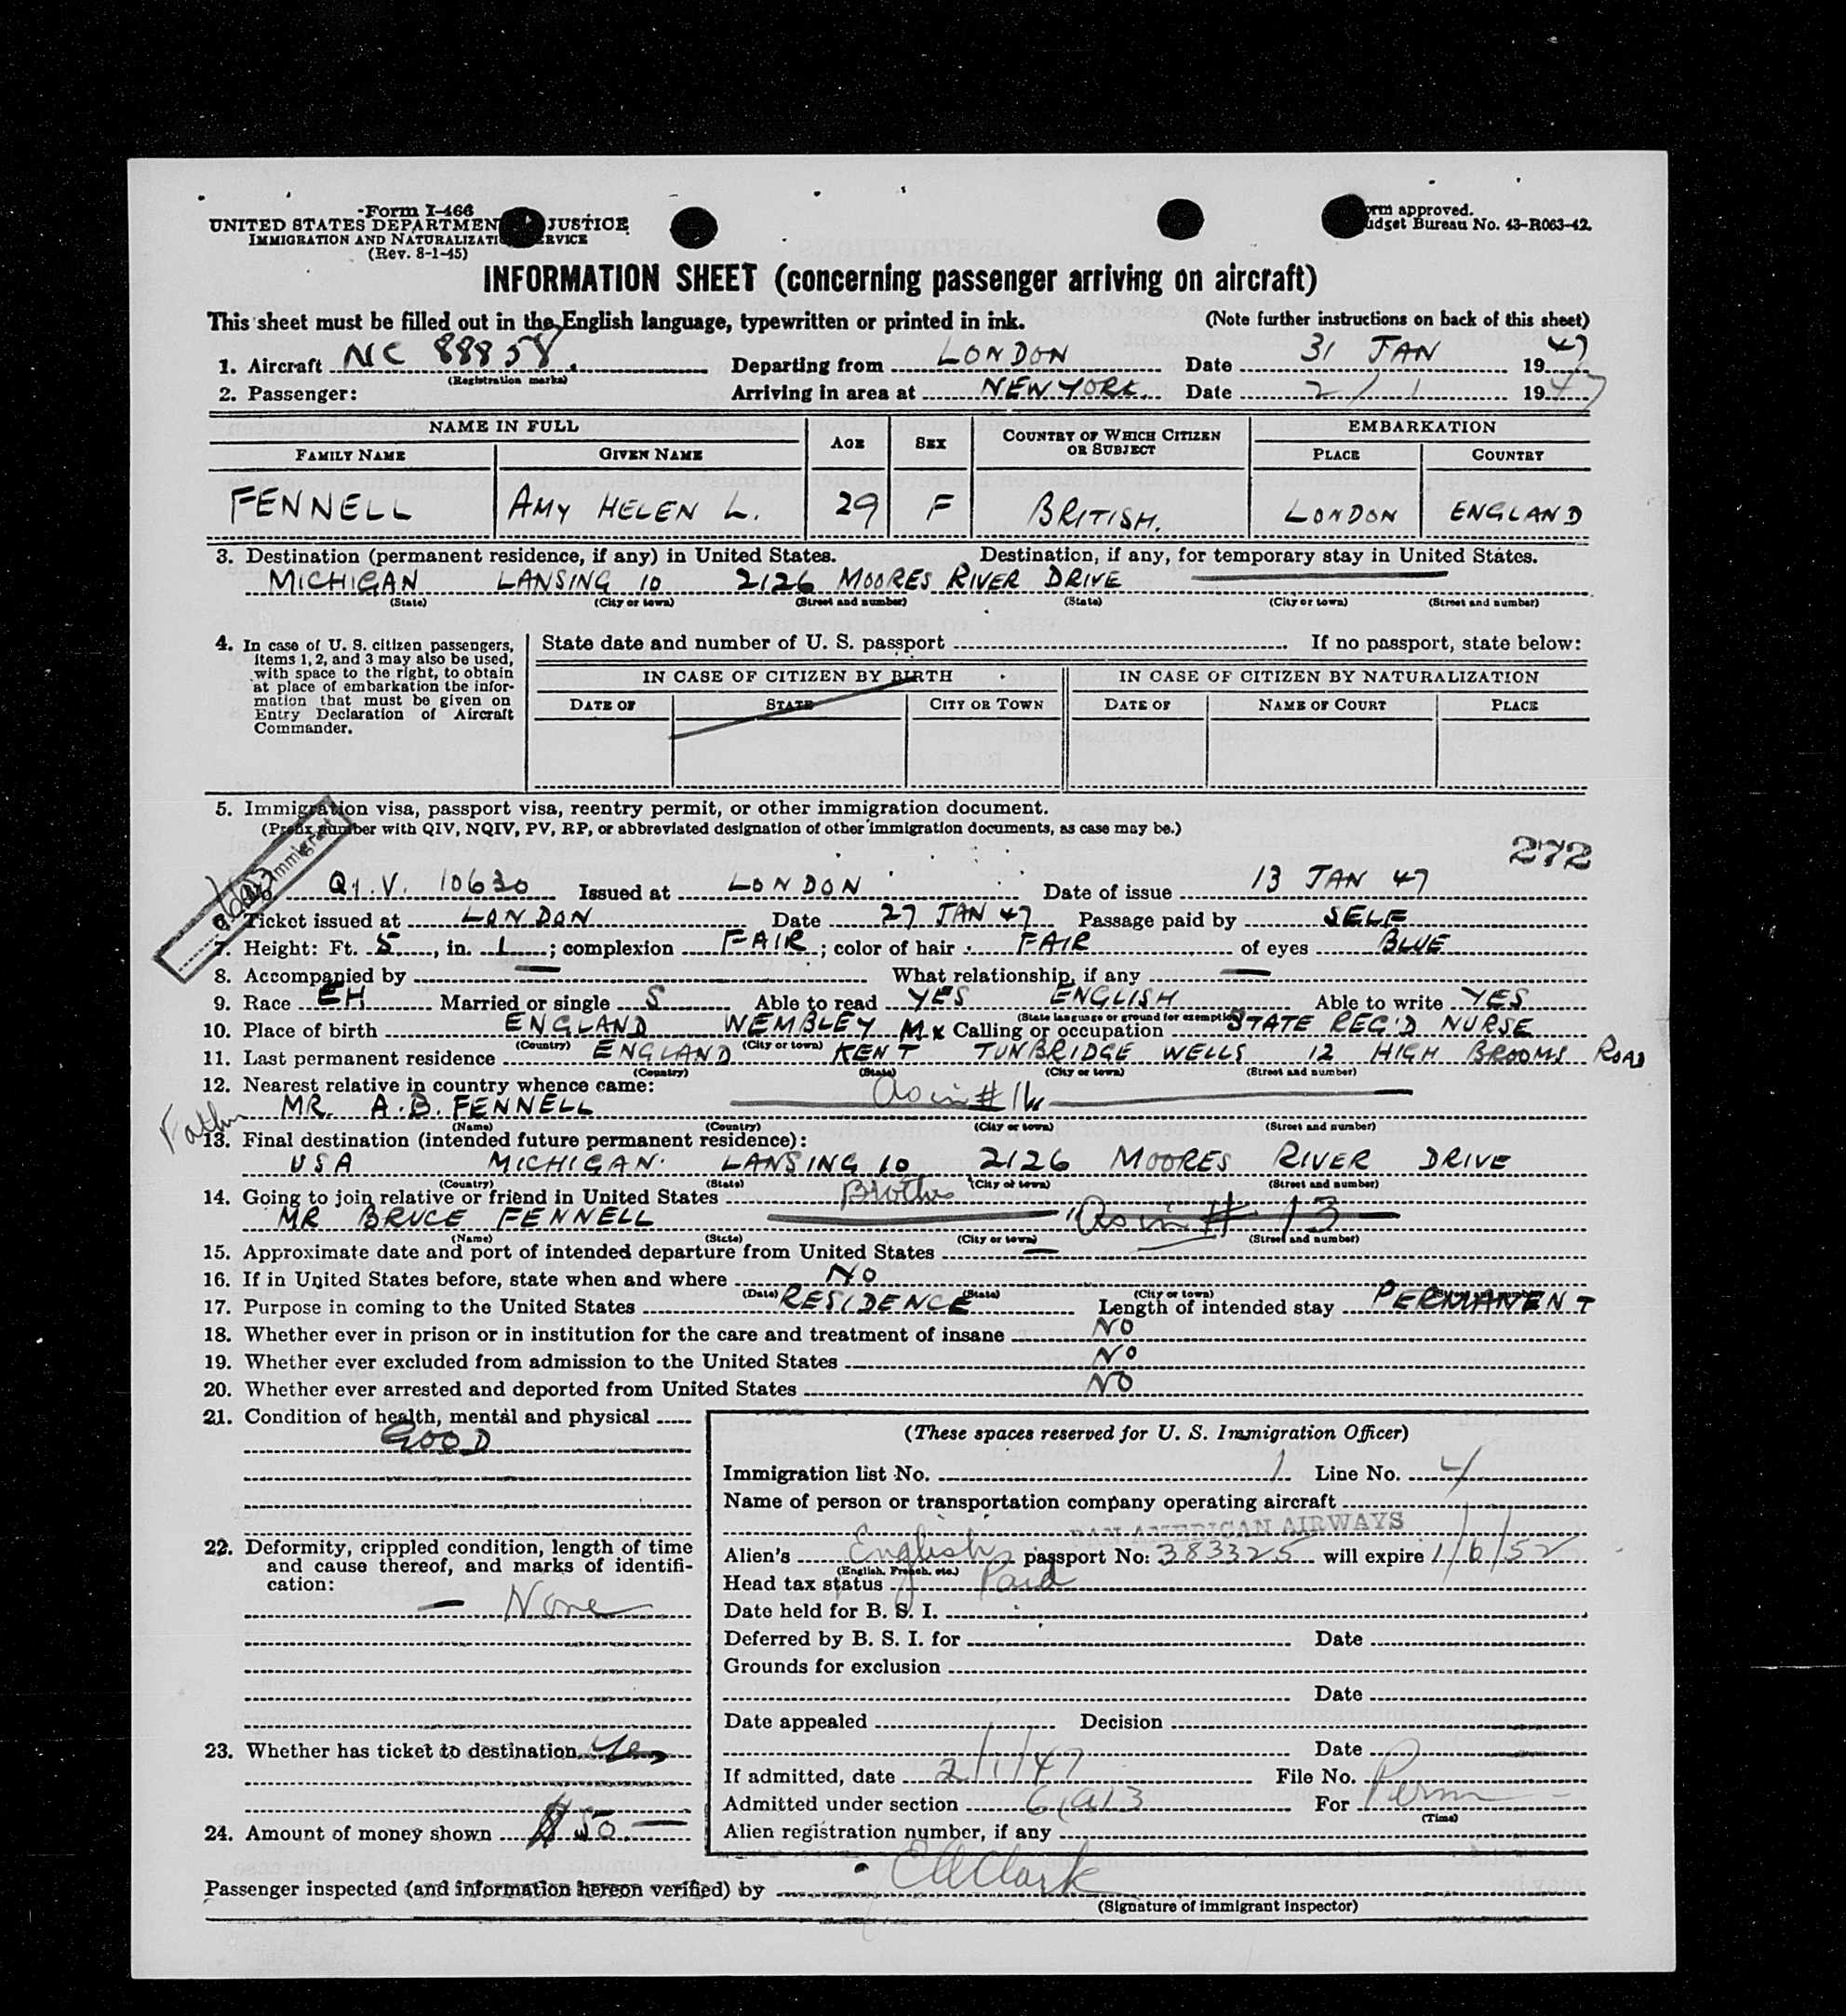 Form I-466
UNITED STATES DEPARTMENT JUSTICE
IMMIGRATION AND NATURALIZATI RVICE
(Rev. 8-1-45)
rm approved.
udget Bureau No. 43-R063-42.
INFORMATION SHEET (concerning passenger arriving on aircraft)
This sheet must be filled out in the English language, typewritten or printed in ink. (Note further instructions on back of this sheet)
1. Aircraft NC 88858. Departing from LONDON Date 31 JAN 1947
(Registration marks)
2. Passenger: Arriving in area at NEW YORK. Date 2/1 1947
NAME IN FULL AGE SEX COUNTRY OF WHICH CITIZEN OR SUBJECT EMBARKATION
FAMILY NAME GIVEN NAME PLACE COUNTRY
FENNELL AMY HELEN L. 29 F BRITISH. LONDON ENGLAND
3. Destination (permanent residence, if any) in United States. Destination, if any, for temporary stay in United States.
MICHIGAN LANSING 10 2126 MOORES RIVER DRIVE
(State) (City or town) (Street and number) (State) (City or town) (Street and number)
4. In case of U. S. citizen passengers, items 1, 2, and 3 may also be used, with space to the right, to obtain at place of embarkation the information that must be given on Entry Declaration of Aircraft Commander.
State date and number of U. S. passport If no passport, state below:
IN CASE OF CITIZEN BY BIRTH IN CASE OF CITIZEN BY NATURALIZATION
DATE OF STATE CITY OR TOWN DATE OF NAME OF COURT PLACE
5. Immigration visa, passport visa, reentry permit, or other immigration document.
(Prefix number with QIV, NQIV, PV, RP, or abbreviated designation of other immigration documents, as case may be.)
272
Immigrat
Q.I.V. 10630 Issued at LONDON Date of issue 13 JAN 47
Ticket issued at LONDON Date 27 JAN 47 Passage paid by SELF
Height: Ft. 5, in. 1; complexion FAIR; color of hair FAIR of eyes BLUE
8. Accompanied by — What relationship, if any —
9. Race EH Married or single S Able to read YES ENGLISH Able to write YES
(State language or ground for exemption)
10. Place of birth ENGLAND WEMBLEY Mx Calling or occupation STATE REG'D NURSE
(Country) (City or town)
11. Last permanent residence ENGLAND KENT TUNBRIDGE WELLS 12 HIGH BROOMS ROAD
(Country) (State) (City or town) (Street and number)
12. Nearest relative in country whence came:
Father MR. A.B. FENNELL As in # 11
(Name) (Country) (City or town) (Street and number)
13. Final destination (intended future permanent residence):
USA MICHIGAN LANSING 10 2126 MOORES RIVER DRIVE
(Country) (State) (City or town) (Street and number)
14. Going to join relative or friend in United States Brother
MR BRUCE FENNELL As in # 13
(Name) (State) (City or town) (Street and number)
15. Approximate date and port of intended departure from United States —
16. If in United States before, state when and where NO
(Date) (State) (City or town) (Street and number)
17. Purpose in coming to the United States RESIDENCE Length of intended stay PERMANENT
18. Whether ever in prison or in institution for the care and treatment of insane NO
19. Whether ever excluded from admission to the United States NO
20. Whether ever arrested and deported from United States NO
21. Condition of health, mental and physical
GOOD
22. Deformity, crippled condition, length of time and cause thereof, and marks of identification:
— None
23. Whether has ticket to destination Yes
24. Amount of money shown $50.—
(These spaces reserved for U. S. Immigration Officer)
Immigration list No. 1 Line No. 4
Name of person or transportation company operating aircraft
PAN AMERICAN AIRWAYS
Alien's English passport No: 383325 will expire 1/6/52
(English, French, etc.)
Head tax status Paid
Date held for B. S. I.
Deferred by B. S. I. for Date
Grounds for exclusion
Date
Date appealed Decision
Date
If admitted, date 2/1/47 File No.
Admitted under section 6(a)3 For Perm
(Time)
Alien registration number, if any
Passenger inspected (and information hereon verified) by E A Clark
(Signature of immigrant inspector)